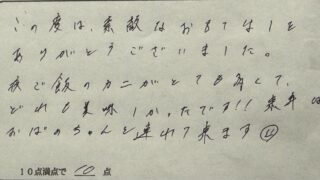 この度は、素敵なおもてなしを
ありがとうございました。
夜ご飯のカニがとても多くて、
どれも美味しかったです!! 来年は
おばのちゃんを連れて来ます
10点満点で 10 点